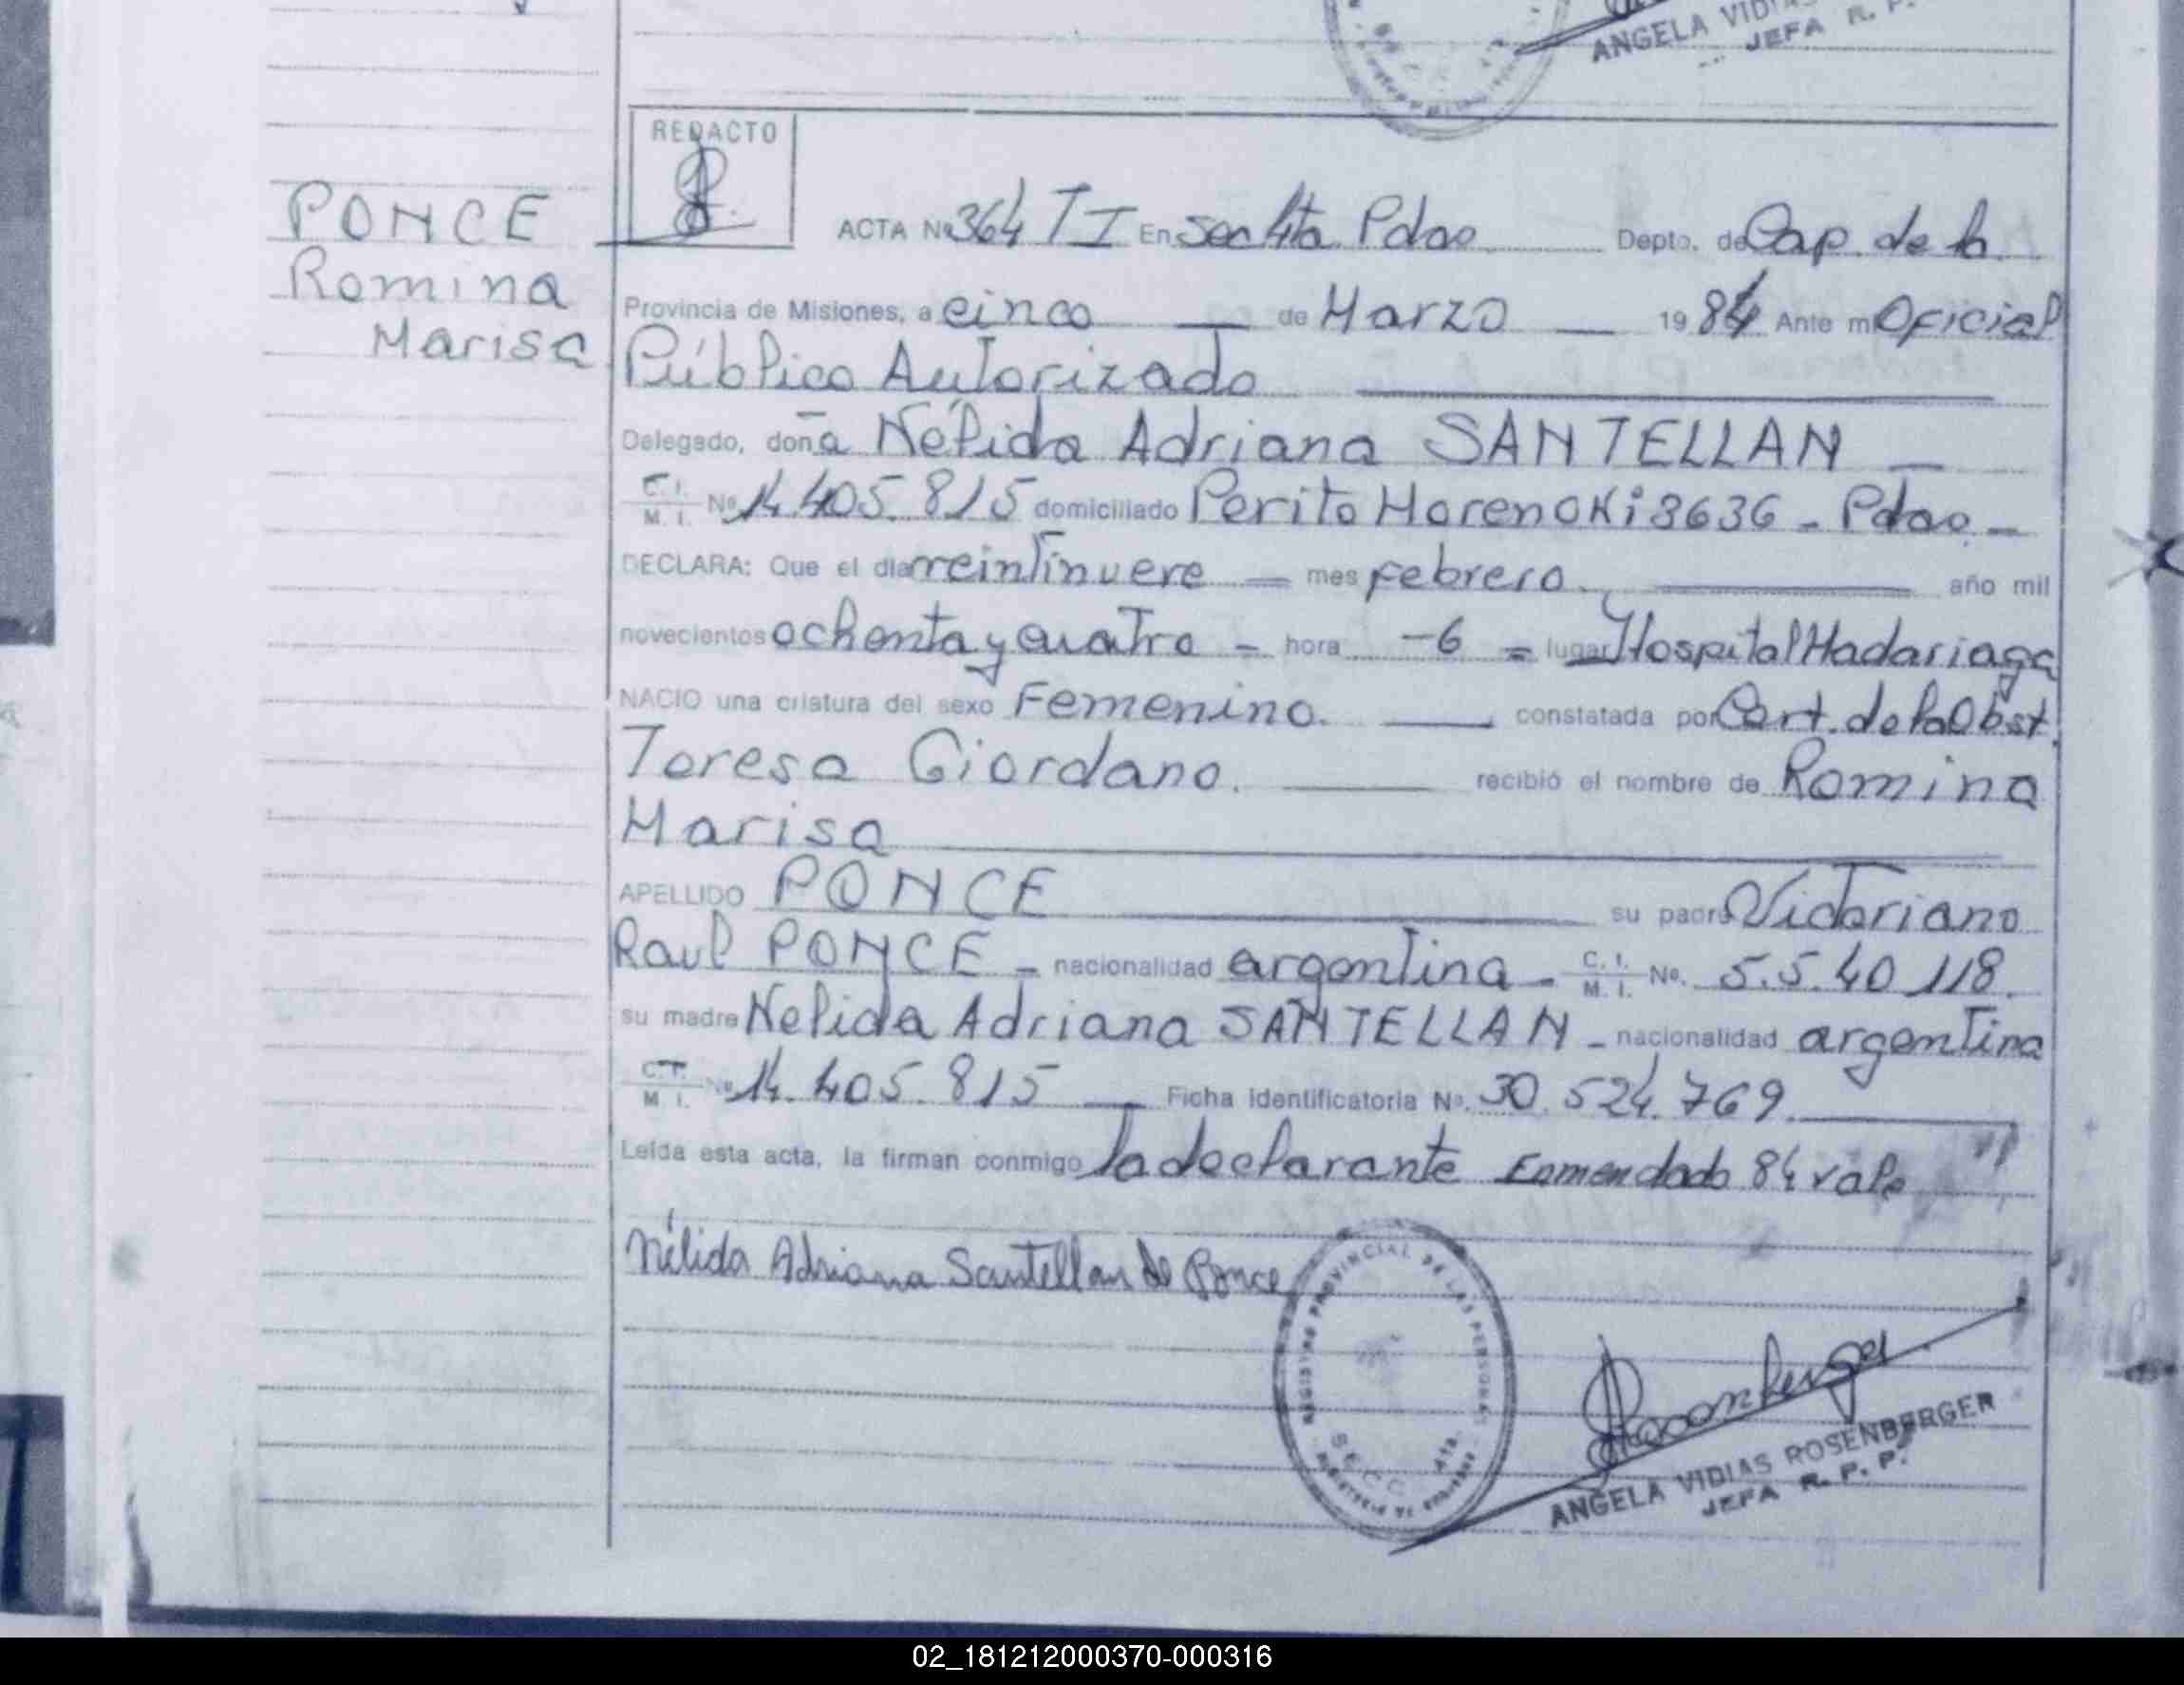 ANGELA VIDIAS
JEFA R. P.
REDACTO
PONCE
Romina
Marisa
ACTA Nº 364 TI En Sec 4ta Pdas Depto. de Cap. de la
Provincia de Misiones, a cinco de Marzo 1984 Ante mi Oficial
Público Autorizado
Delegado, doña Nélida Adriana SANTELLAN
C. I. M. I. Nº 14.405.815 domiciliado Perito Moreno Nº 3636 - Pdas -
DECLARA: Que el dia veintinueve mes febrero año mil
novecientos ochenta y cuatro - hora - 6 = lugar Hospital Madariaga
NACIO una criatura del sexo Femenino. constatada por Cert. de la Obst.
Teresa Giordano. recibió el nombre de Romina
Marisa
APELLIDO PONCE su padre Victoriano
Raul PONCE - nacionalidad argentina - C. I. M. I. Nº. 5.540.118.
su madre Nelida Adriana SANTELLAN - nacionalidad argentina
C. I. M. I. Nº 14.405.815 Ficha identificatoria Nº. 30.524.769.
Leída esta acta, la firman conmigo la declarante Enmendado 84 vale
Nélida Adriana Santellan de Ponce
REGISTRO PROVINCIAL DE LAS PERSONAS
SECC 4ta.
ANGELA VIDIAS ROSENBERGER
JEFA R. P. P.
02_181212000370-000316